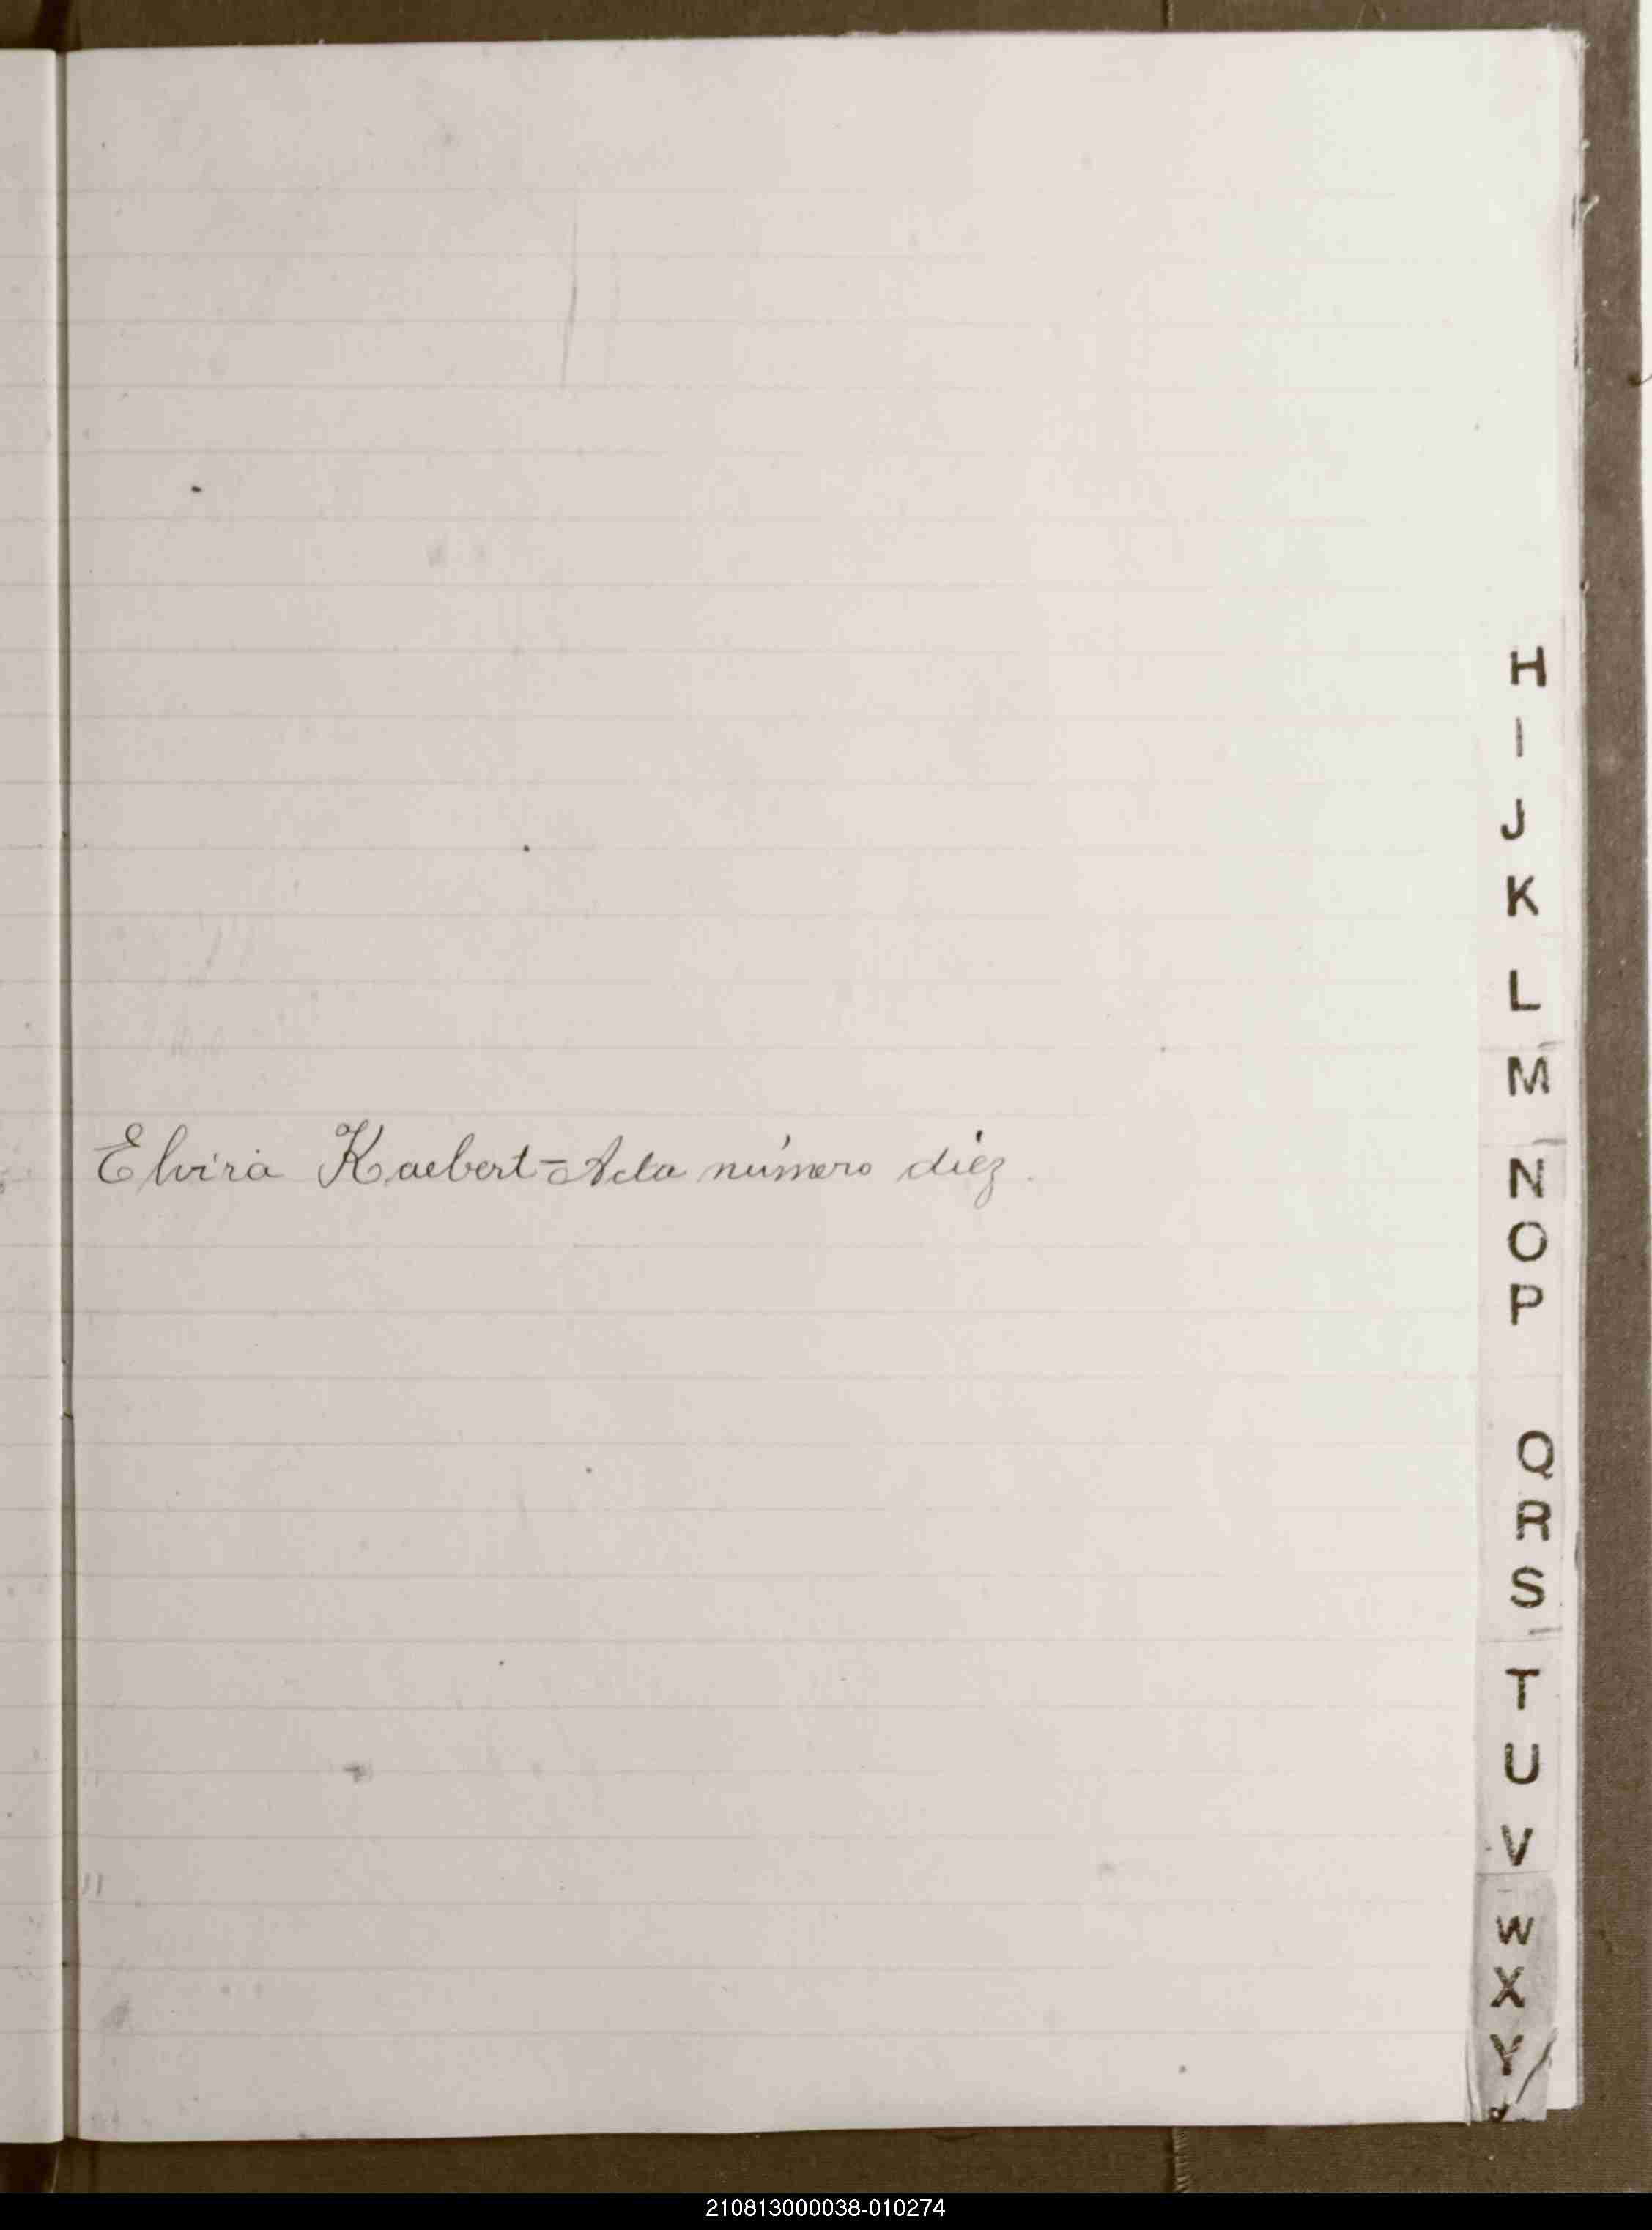 H
I
J
K
L
M
Elvira Kaebert = Acta número diez
N
O
P
Q
R
S
T
U
V
W
X
Y
210813000038-010274